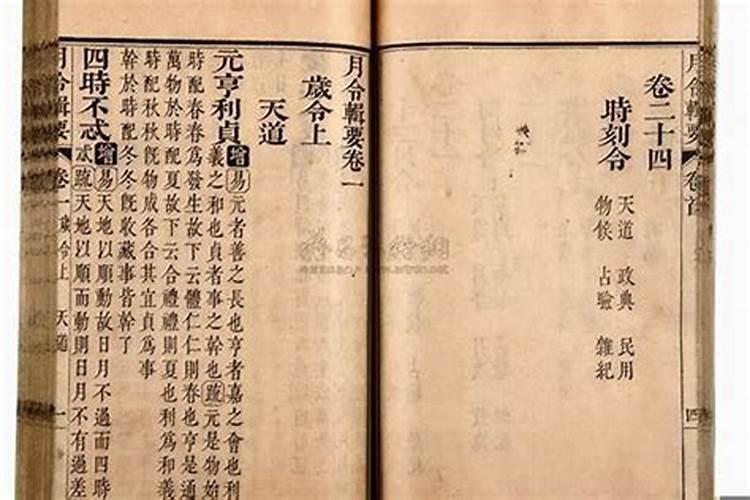 月令輯要 卷首 四
卷二十四
時刻令
天道 政典 民用
物候 占驗 雜紀
月令輯要卷一
歲令上
天道
元亨利貞 增 易 元者善之長也亨者嘉之會也利
義之和也貞者事之幹也 疏 元是物始
時配春春為發生故下云體仁仁則春也亨是通
萬物於時配夏故下云合禮禮則夏也利為和義
時配秋秋旣物成各合其宜貞為事
幹於時配冬冬旣收藏事皆幹了
四時不忒 增 易 天地以順動故日月不過而四時
忒 疏 天地以順而動則日月不有過差
月令輯要 卷一 歲令上 天道 一